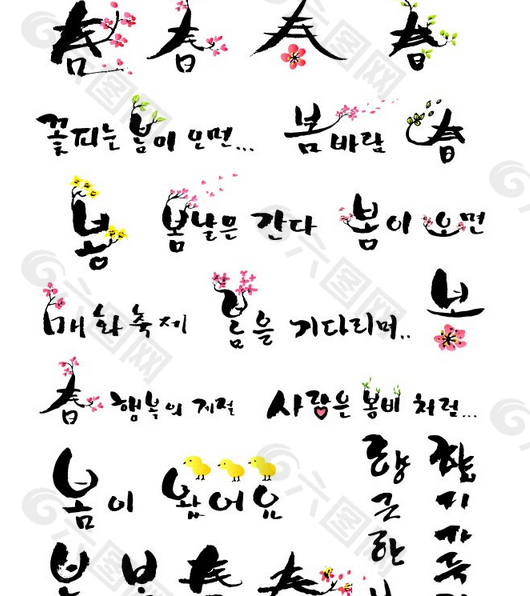 春 春 春 春
꽃피는 봄이 오면... 봄바람 春
봄 봄날은 간다 봄이 오면
매화축제 봄을 기다리며.. 봄
春 행복의 계절 사랑은 봄비처럼...
봄이 왔어요
향근한
봄 봄 春 春